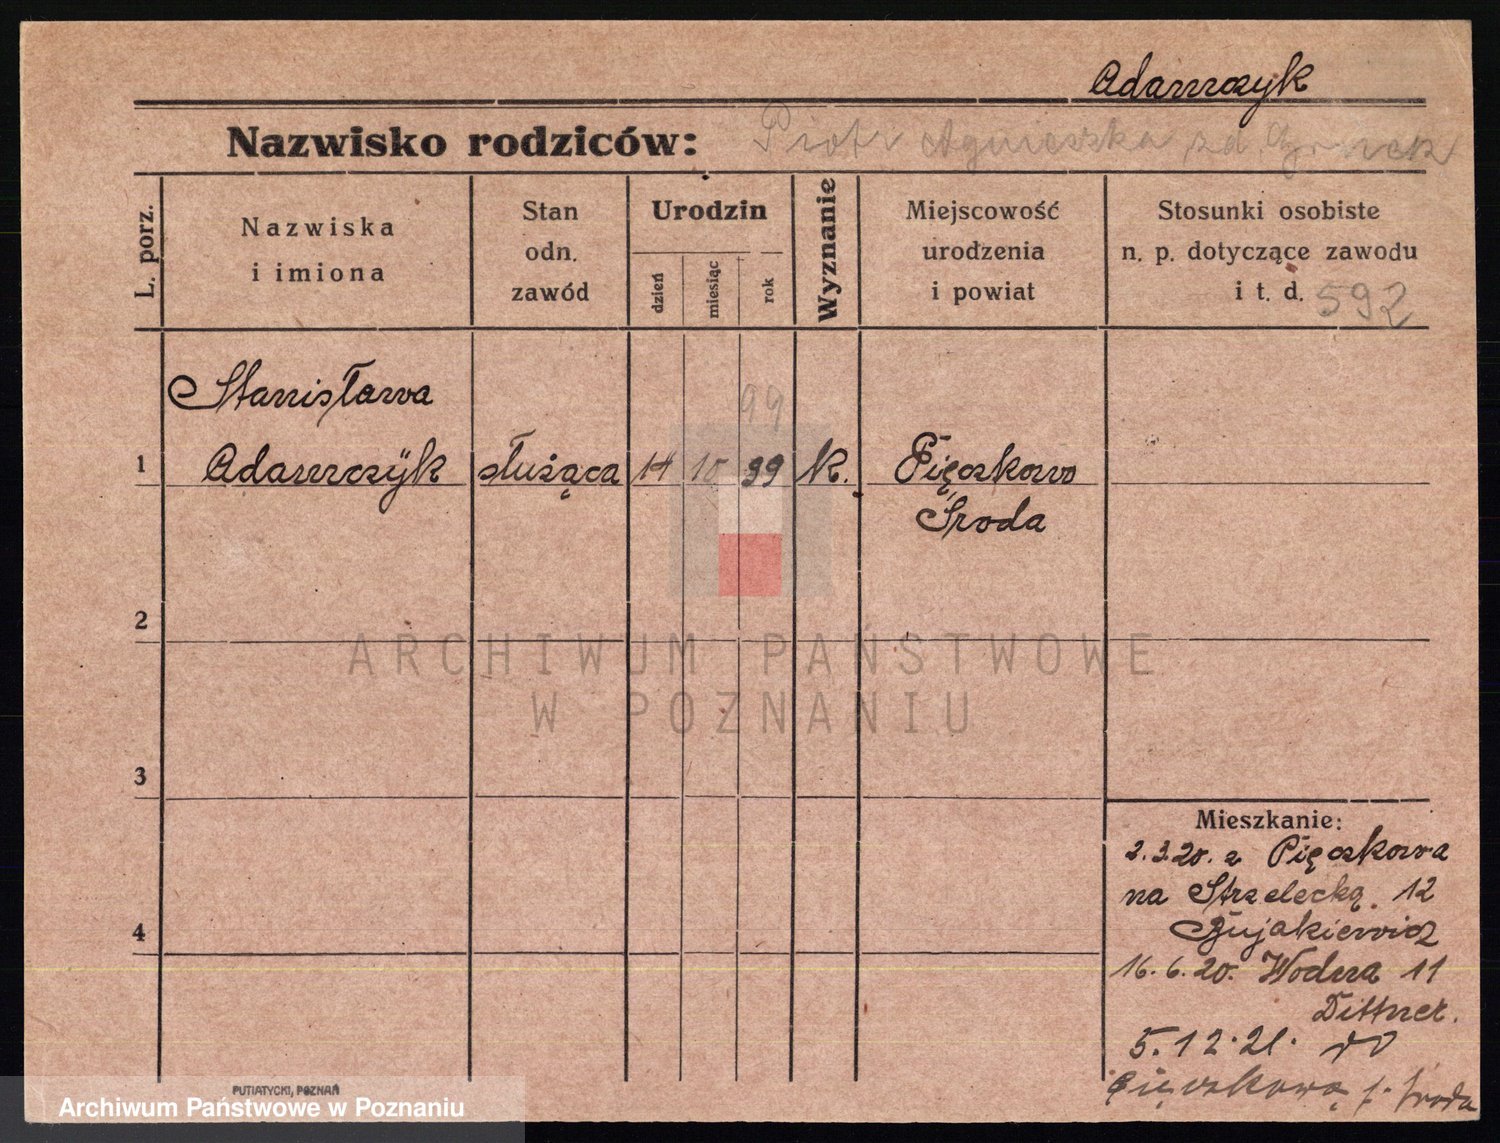 Adamczyk
Nazwisko rodziców: Piotr Agnieszka zd.
L. porz.
Nazwiska
i imiona
Stan
odn.
zawód
Urodzin
dzień
miesiąc
rok
Wyznanie
Miejscowość
urodzenia
i powiat
Stosunki osobiste
n. p. dotyczące zawodu
i t. d. 592
Stanisława
99
1 Adamczyk służąca 14 10 99 k. Pięczkowo
Środa
2
ARCHIWUM PAŃSTWOWE
W POZNANIU
3
4
Mieszkanie:
2.3.20. z Pięczkowa
na Strzelecką 12
Bujakiewicz
16.6.20. Wodna 11
Dittner.
5.12.21. do
Pięczkowa p. Środa
PUTIATYCKI, POZNAŃ
Archiwum Państwowe w Poznaniu